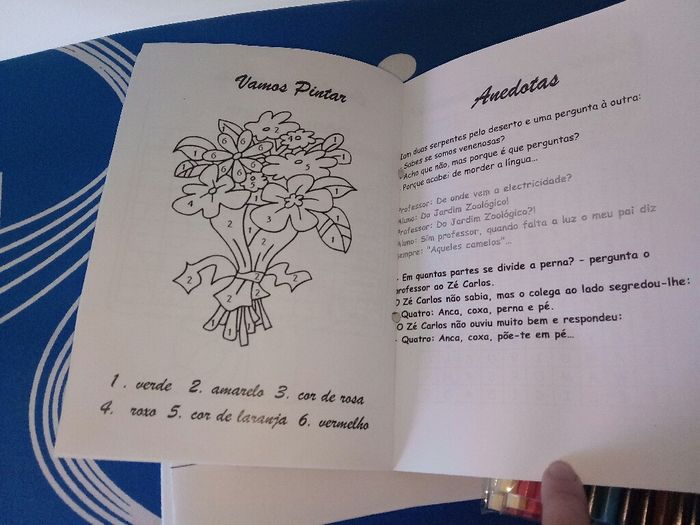 Vamos Pintar
1. verde 2. amarelo 3. cor de rosa
4. roxo 5. cor de laranja 6. vermelho
Anedotas
Iam duas serpentes pelo deserto e uma pergunta à outra:
- Sabes se somos venenosas?
- Acho que não, mas porque é que perguntas?
- Porque acabei de morder a língua...
Professor: De onde vem a electricidade?
Aluno: Do Jardim Zoológico!
Professor: Do Jardim Zoológico?!
Aluno: Sim professor, quando falta a luz o meu pai diz
sempre: "Aqueles camelos"...
- Em quantas partes se divide a perna? - pergunta o
professor ao Zé Carlos.
O Zé Carlos não sabia, mas o colega ao lado segredou-lhe:
- Quatro: Anca, coxa, perna e pé.
O Zé Carlos não ouviu muito bem e respondeu:
- Quatro: Anca, coxa, põe-te em pé...